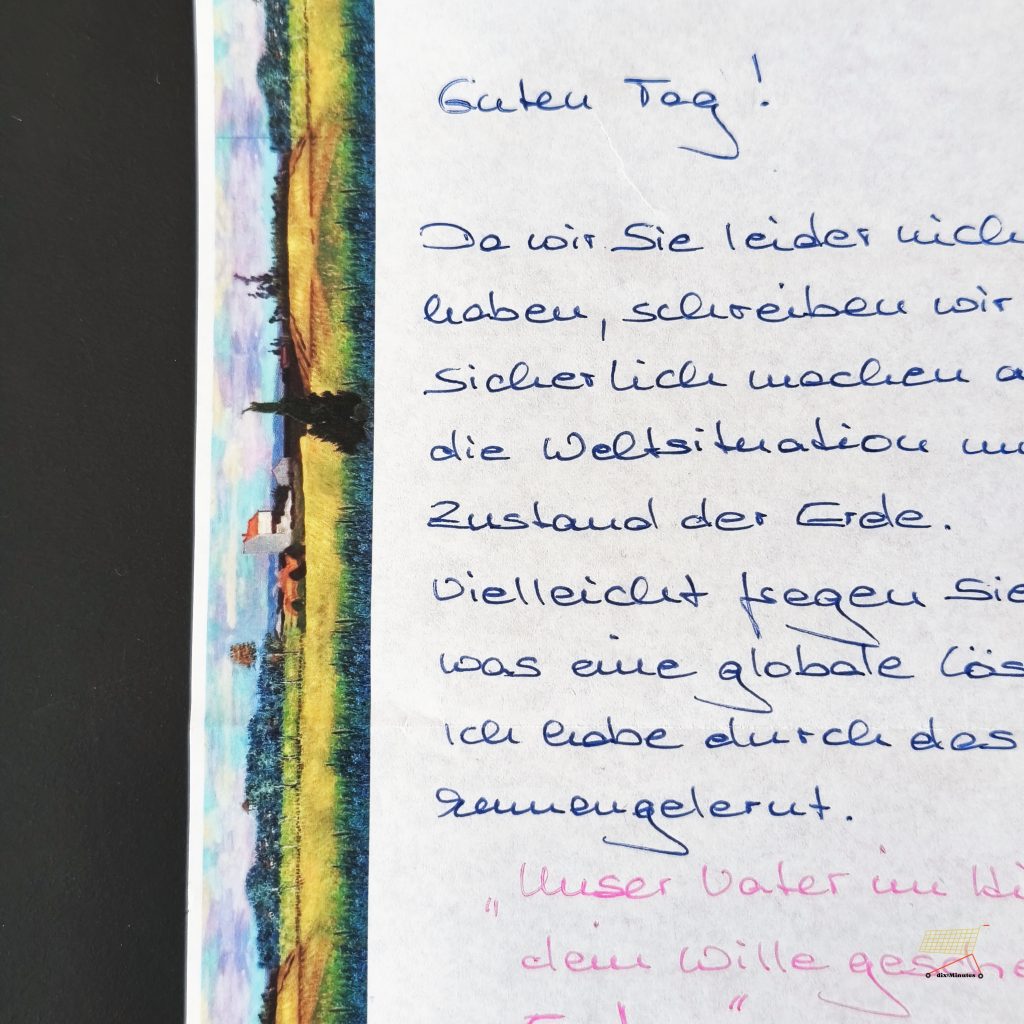 Guten Tag!
Da wir Sie leider nich
haben, schreiben wir
sicherlich machen a
die Weltsituation un
Zustand der Erde.
Vielleicht fregen Sie
was eine globale Lös
Ich habe durch das
kennengelernt.
„Unser Vater im Hi
dein Wille gesche
dix-Minutes